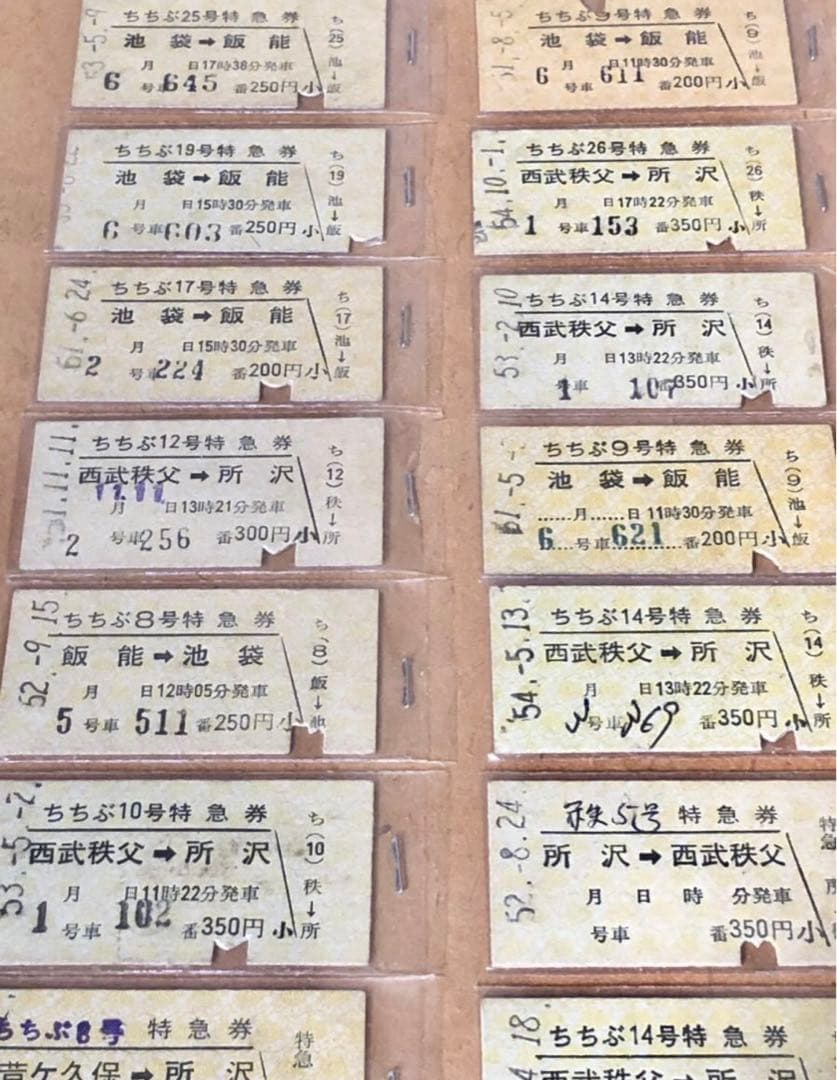 ちちぶ25号特急券
池袋➡飯能
月 日17時38分発車
6号車645番250円小
ち(25)池→飯
53.-5.-9
ちちぶ19号特急券
池袋➡飯能
月 日15時30分発車
6号車603番250円小
ち(19)池→飯
ちちぶ17号特急券
池袋➡飯能
月 日15時30分発車
2号車224番200円小
ち(17)池→飯
51.-6.24
ちちぶ12号特急券
西武秩父➡所沢
11.11
月 日13時21分発車
2号車256番300円小
ち(12)秩→所
51.11.11.
ちちぶ8号特急券
飯能➡池袋
月 日12時05分発車
5号車511番250円小
ち(8)飯→池
52.-9.15
ちちぶ10号特急券
西武秩父➡所沢
月 日11時22分発車
1号車102番350円小
ち(10)秩→所
53.-5.-2
ちちぶ8号 特急券
芦ケ久保➡所沢
特急
ちちぶ9号特急券
池袋➡飯能
月 日11時30分発車
6号車611番200円小
ち(9)池→飯
51.-8.-5
ちちぶ26号特急券
西武秩父➡所沢
月 日17時22分発車
1号車153番350円小
ち(26)秩→所
54.10.-1.
ちちぶ14号特急券
西武秩父➡所沢
月 日13時22分発車
1号車107番350円小
ち(14)秩→所
53.-2.10
ちちぶ9号特急券
池袋➡飯能
......月......日11時30分発車
6...号車621番200円小
ち(9)池→飯
51.-5.-
ちちぶ14号特急券
西武秩父➡所沢
月 日13時22分発車
2号車269番350円小
ち(14)秩→所
54.-5.13.
秩51号 特急券
所沢➡西武秩父
月 日 時 分発車
号車 番350円小
特急
52.-8.24.
ちちぶ14号特急券
西武秩父➡所沢
18.